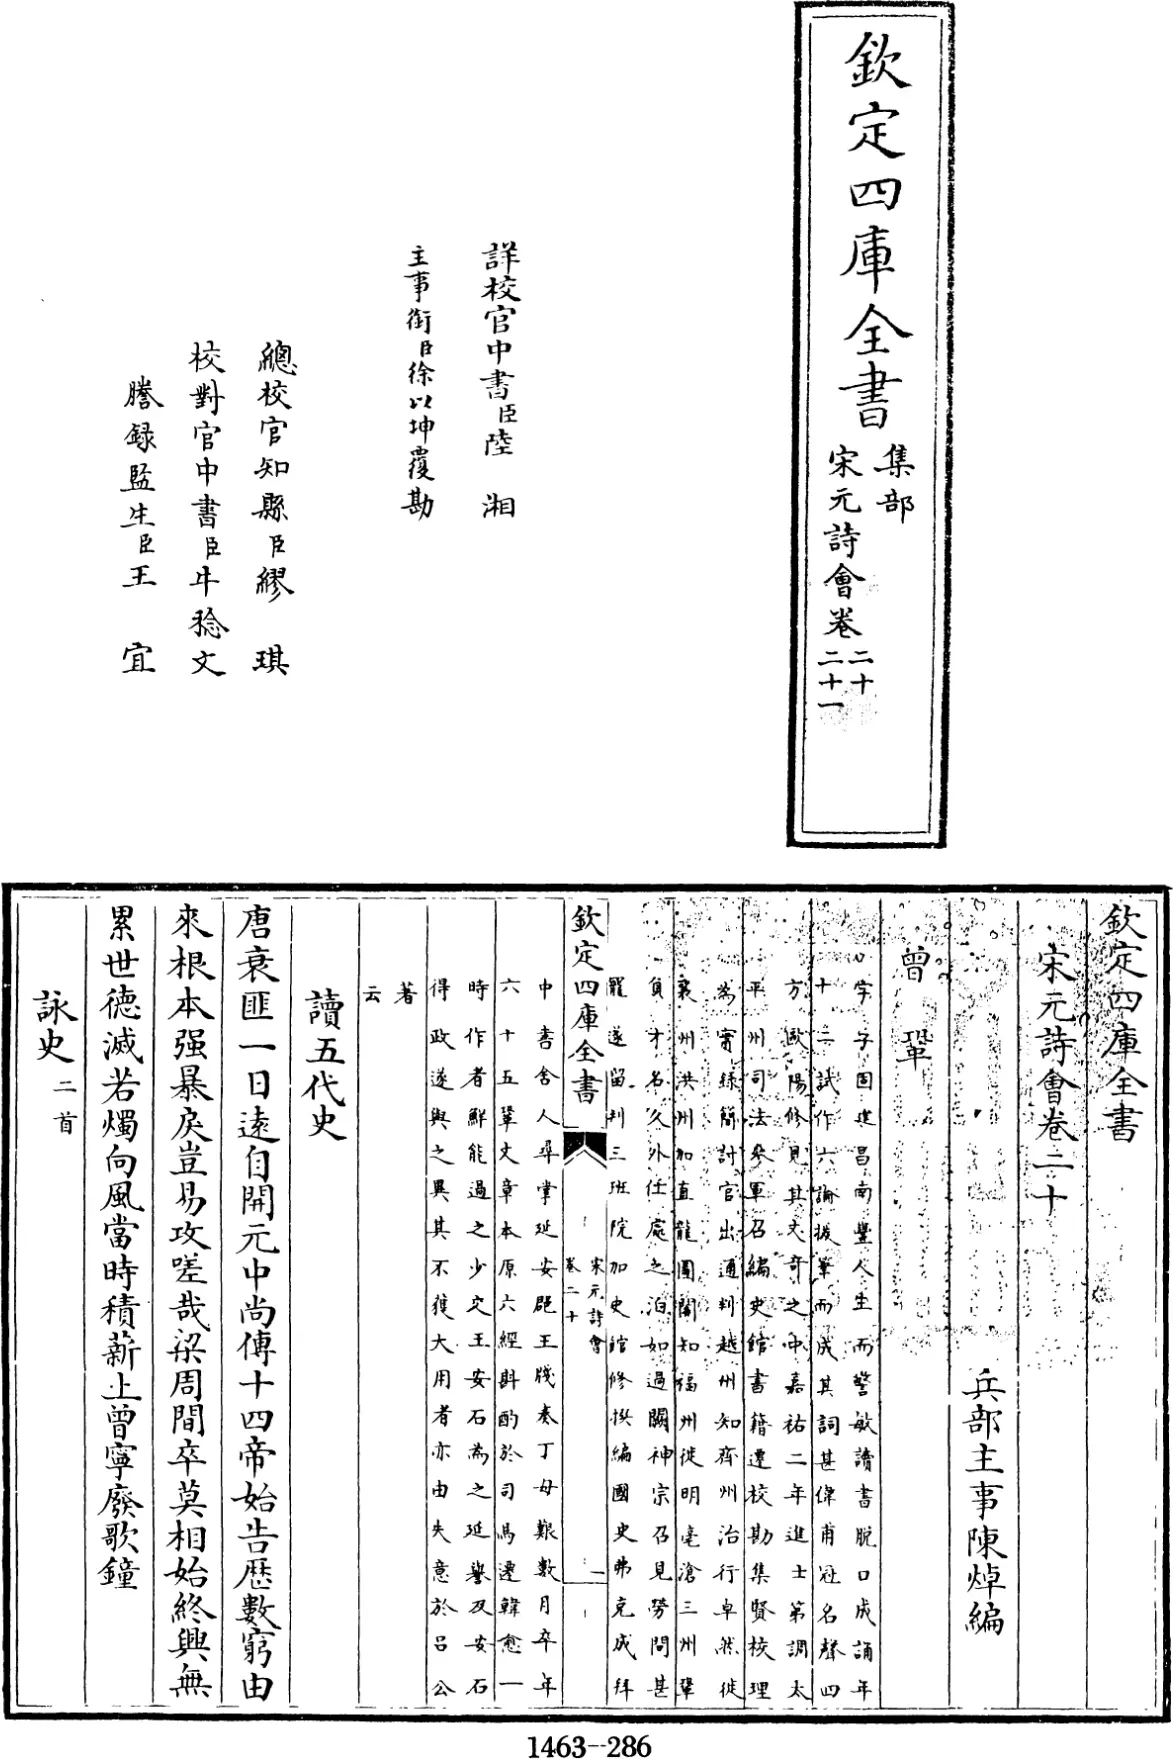 欽定四庫全書
集部
宋元詩會卷二十
二十一
詳校官中書臣陸湘
主事銜臣徐以坤覆勘
總校官知縣臣繆琪
校對官中書臣牛稔文
謄録監生臣王宜
欽定四庫全書
宋元詩會卷二十
兵部主事陳焯編
曾鞏
字子固建昌南豐人生而警敏讀書脫口成誦年
十二試作六論援筆而成其詞甚偉甫冠名聲四
方歐陽修見其文奇之中嘉祐二年進士第調太
平州司法參軍召編史館書籍遷校勘集賢校理
為實録簡討官出通判越州知齊州治行卓然徙
襄州洪州加直龍圖閣知福州徙明亳滄三州鞏
負才名久外任處之泊如過闕神宗召見勞問甚
寵遂留判三班院加史館修撰編國史弗克成拜
欽定四庫全書
宋元詩會
卷二十
一
中書舍人尋掌延安郡王牋奏丁母艱數月卒年
六十五鞏文章本原六經斟酌於司馬遷韓愈一
時作者鮮能過之少交王安石為之延譽及安石
得政遂與之異其不獲大用者亦由失意於呂公
著
云
讀五代史
唐衰匪一日遠自開元中尚傳十四帝始告厯數窮由
來根本强暴戾豈易攻嗟哉梁周間卒莫相始終興無
累世德滅若燭向風當時積薪上曾寧廢歌鐘
詠史二首
1463-286